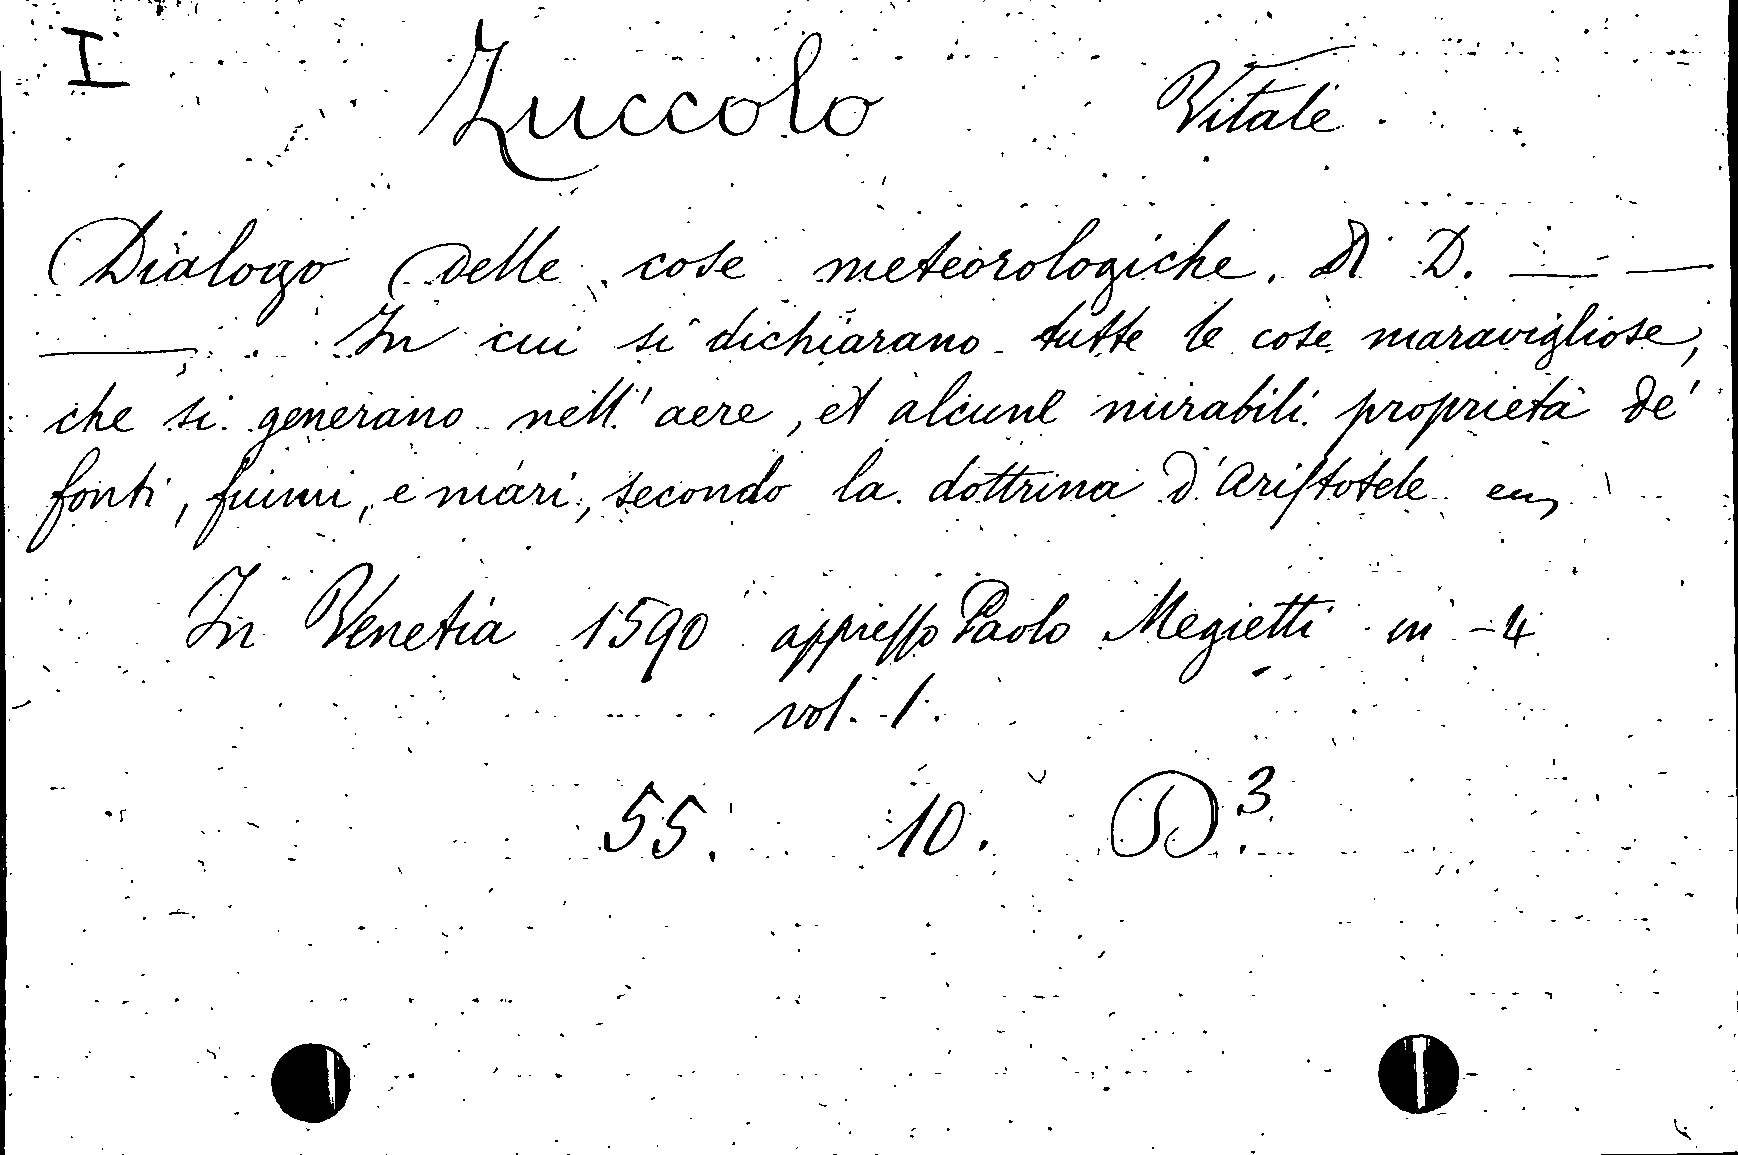 I
Zuccolo Vitale
Dialogo delle cose meteorologiche. Di D. — —
— . In cui si dichiarano tutte le cose maravigliose,
che si generano nell' aere, et alcune mirabili proprietà de'
fonti, fiumi, e mari, secondo la dottrina d'Aristotele
In Venetia 1590 appresso Paolo Megietti in -4
vol. 1.
55. 10. D³.